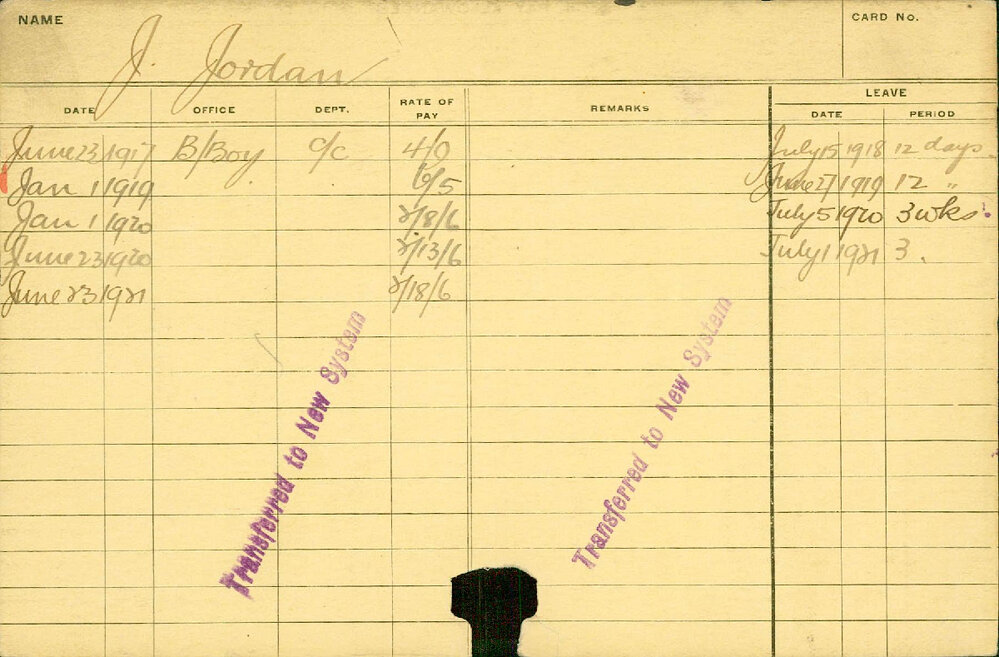 NAME
J. Jordan
CARD No.
DATE OFFICE DEPT. RATE OF PAY REMARKS LEAVE
DATE PERIOD
June 23 1917 B/Boy o/c 4/0 July 15 1918 12 days
Jan 1 1919 6/5 June 27 1919 12 "
Jan 1 1920 2/8/6 July 5 1920 3 wks.
June 23 1920 2/13/6 July 1 1921 3 .
June 23 1921 2/18/6
Transferred to New System
Transferred to New System